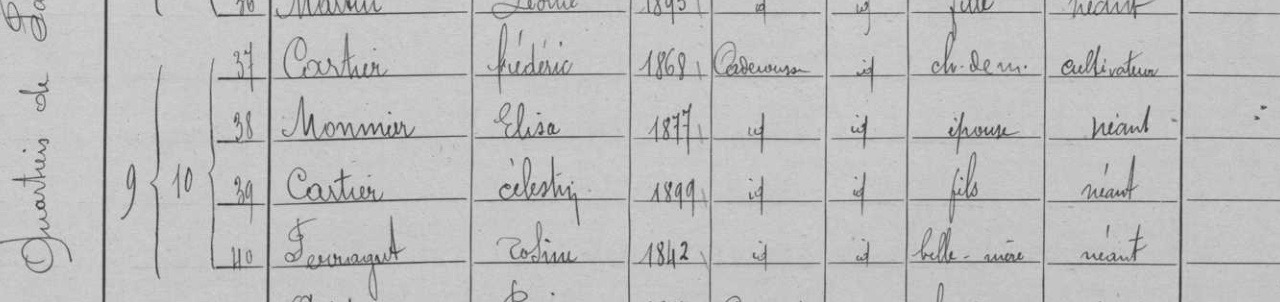 36 Martin 1895 id id fille néant
37 Cartier frédéric 1868 Caderousse id ch. de m. cultivateur
38 Monnier Elisa 1877 id id épouse néant
9 10 39 Cartier célestin 1899 id id fils néant
40 Ferragut Rosine 1842 id id belle-mère néant
Quartier de